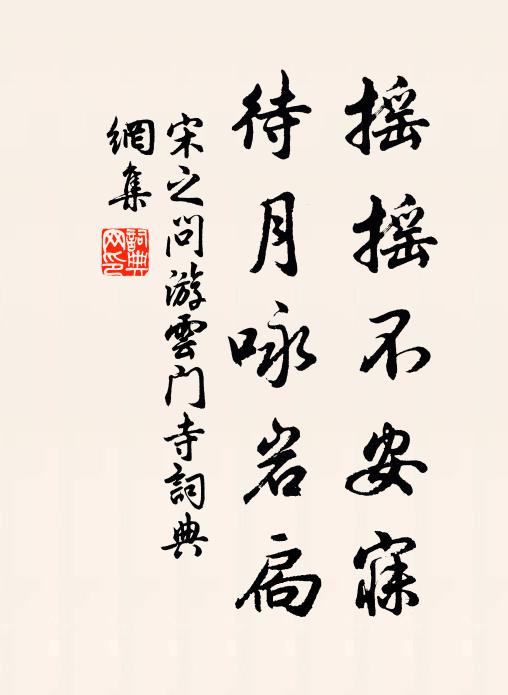 摇摇不安寐
待月咏岩扃
宋之问游雲门寺詞典
網集
詞典网印